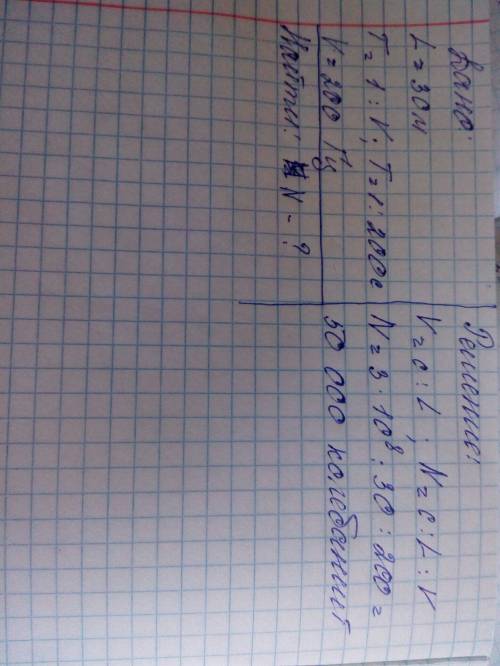 Дано:
L = 30 м
T = 1 : V; T = 1 : 200 с
V = 200 Гц
Найти: N - ?
Решение:
V = c : L; N = c : L : V
N = 3 · 10⁸ : 30 : 200 =
50 000 колебаний